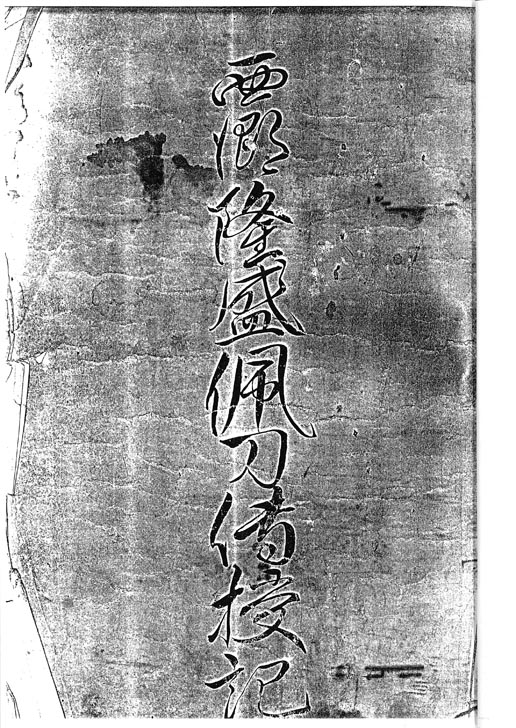 西郷隆盛佩刀傳授記